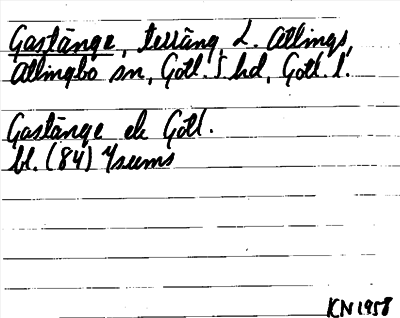 Gastänge, terräng, L. Atlings,
Atlingbo sn, Gotl. S hd, Gotl. l.
Gastänge ek Gotl.
bl. (84) Ysums
KN 1958